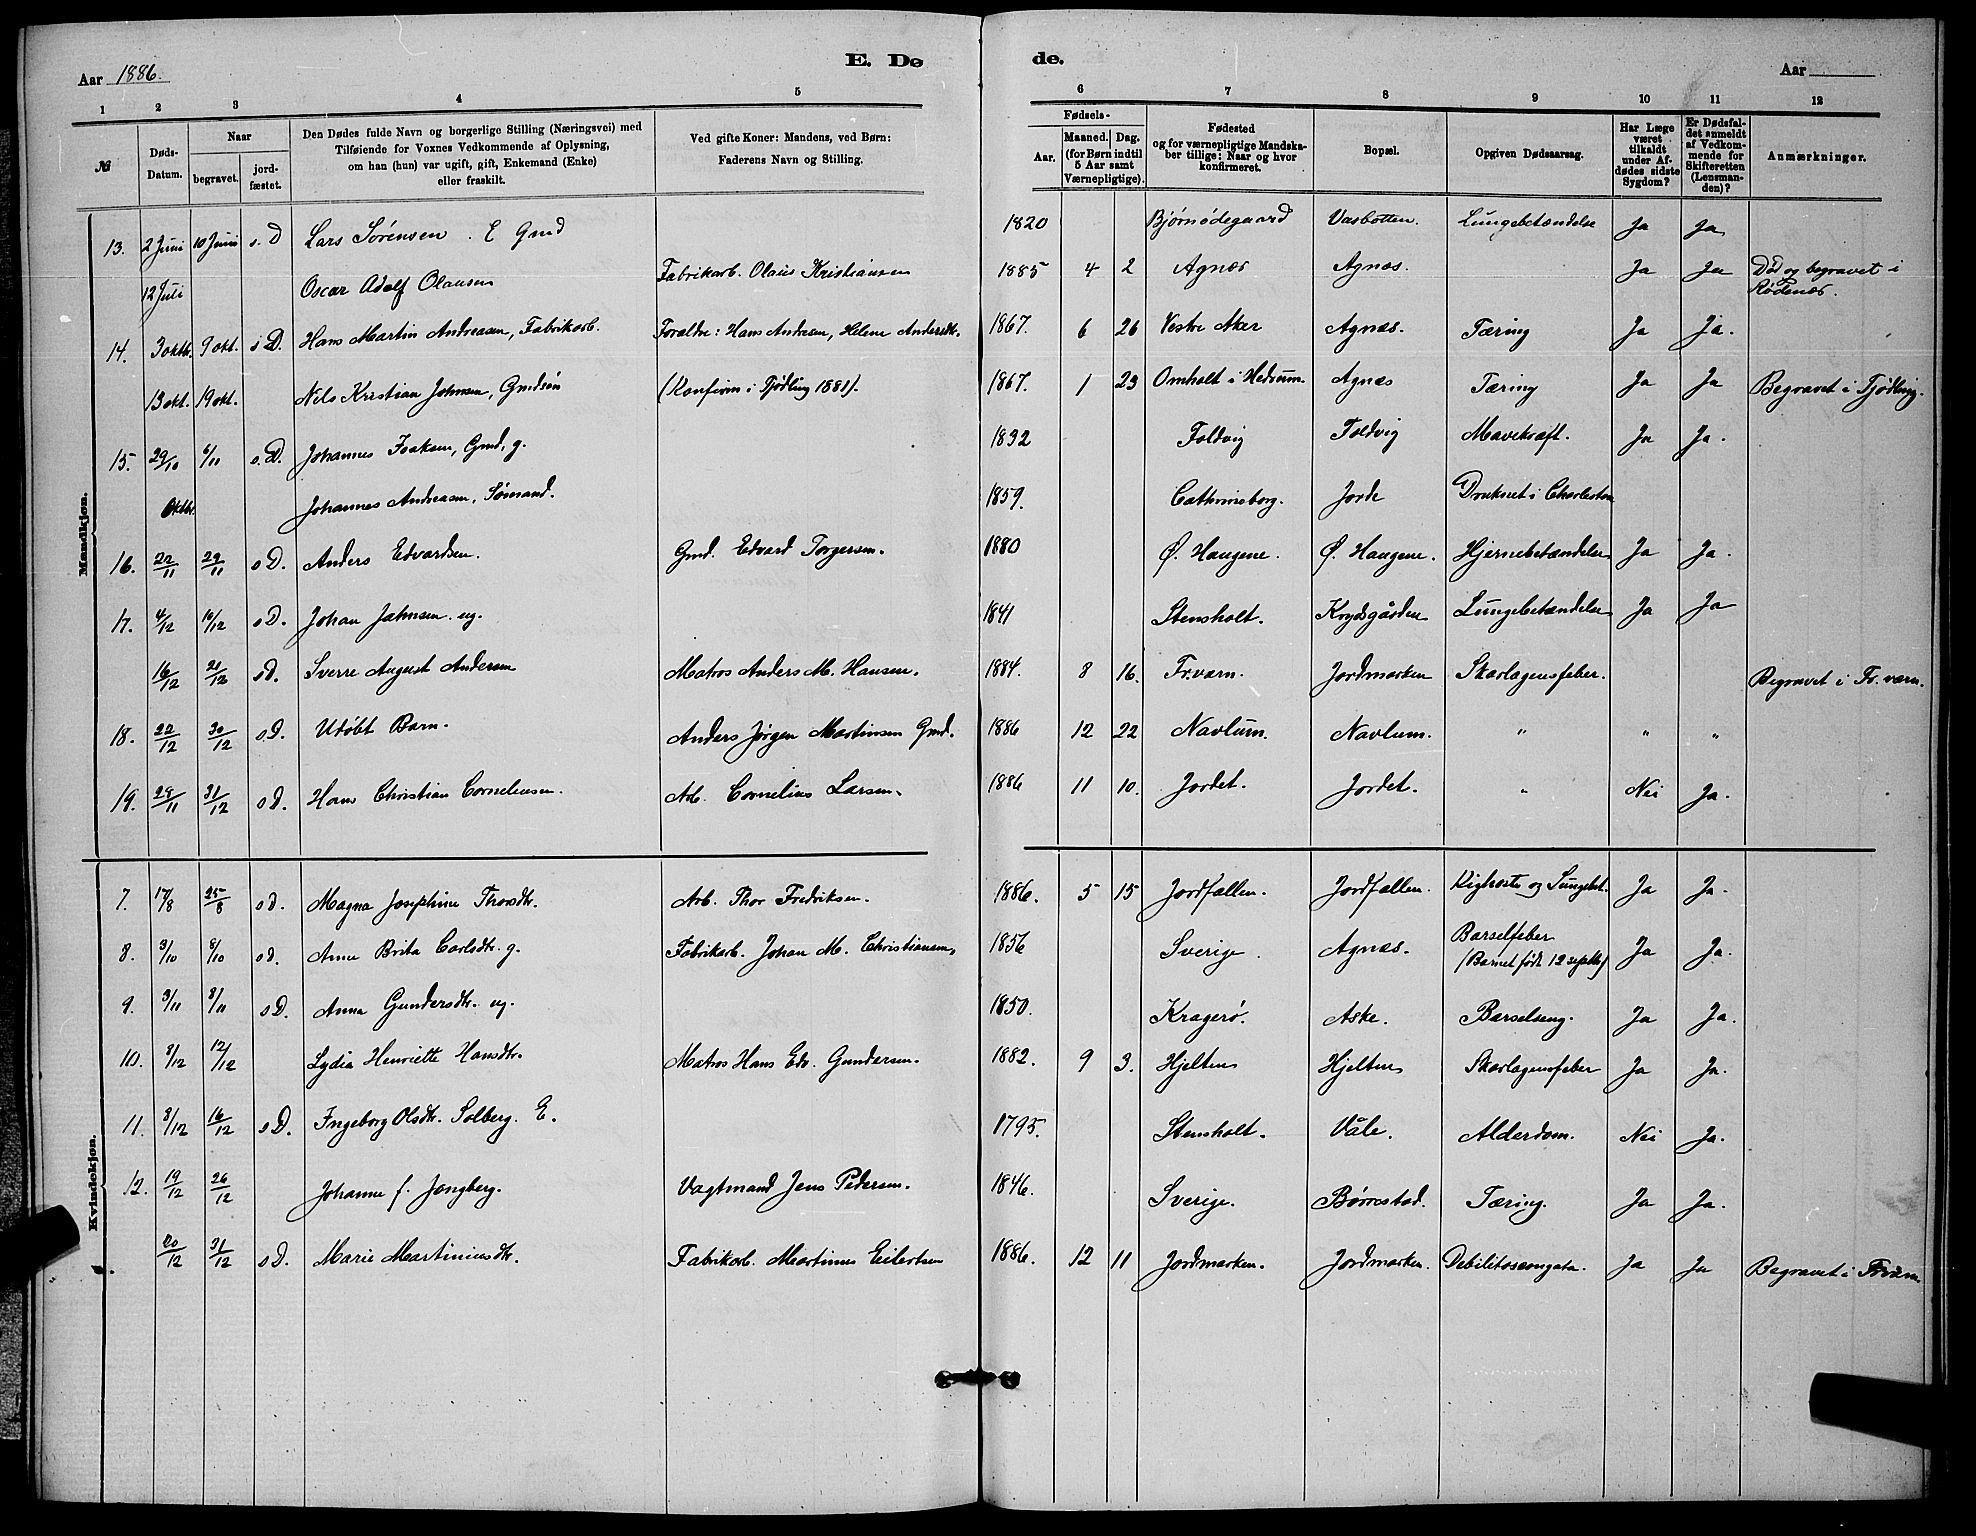 Aar 1886.
E. Dø
de.
Aar
1 2 3 4 5 6 7 8 9 10 11 12
№
Døds-Datum.
Naar
begravet.
jordfæstet.
Den Dødes fulde Navn og borgerlige Stilling (Næringsvei) med
Tilføiende for Voxnes Vedkommende af Oplysning,
om han (hun) var ugift, gift, Enkemand (Enke)
eller fraskilt.
Ved gifte Koner: Mandens, ved Børn:
Faderens Navn og Stilling.
Fødsels-
Aar.
Maaned. Dag.
(for Børn indtil
5 Aar samt
Værnepligtige).
Fødested
og for værnepligtige Mandska-
ber tillige: Naar og hvor
konfirmeret.
Bopæl.
Opgiven Dødsaarsag.
Har Læge
været
tilkaldt
under Af-
dødes sidste
Sygdom?
Er Dødsfal-
det anmeldt
af Vedkom-
mende for
Skifteretten
(Lensman-
den)?
Anmærkninger.
Mandkjøn.
13. 2 Juni 10 Juni s. D Lars Sørensen . E Gmd 1820 Bjørnødegaard Vasbotten. Lungebetændelse Ja Ja
12 Juli Oscar Adolf Olausen Fabrikarb. Olaus Kristiansen 1885 4 2 Agnæs Agnæs. Ja Ja Død og begravet i Rødenæs.
14. 3 oktb. 9 okt. s D. Hans Martin Andreasen, Fabrikarb. Forældre: Hans Andresen, Helene Andersdt. 1867. 6 26 Vestre Aker Agnæs. Tæring Ja Ja.
13 okt. 19 okt. Nils Kristian Johnsen, Gmdsøn (Konfirm i Tjødling 1881). 1867. 1 23 Omholt i Hedrum. Agnæs Tæring Ja Ja Begravet i Tjødling.
15. 29/10 6/11 s. D. Johannes Isaksen, Gmd, g. 1832 Foldvig Foldvig Mavekræft. Ja Ja.
Oktbr. Johannes Andreasen, Sømand. 1859. Cathrineborg. Jorde Druknet i Charleston
16. 22/11 29/11 s D. Anders Edvardsen. Gmd. Edvard Torgersen. 1880 Ø. Haugene. Ø. Haugene. Hjernebetændelse Ja Ja.
17. 4/12 10/12 s D. Johan Jahnsen. ug. 1841 Stensholt. Krydsgården Lungebetændelse Ja Ja
16/12 21/12 s D. Sverre August Andersen Matros Anders M. Hansen. 1884. 8 16. Fr.værn. Jordmarken Skarlagensfeber. Begravet i Fr. værn.
18. 22/12 30/12 s. D. Udøbt Barn. Anders Jørgen Martinsen Gmd. 1886 12 22 Navlum. Navlum. " " "
19. 28/11 31/12 s D. Hans Christian Corneliussen. Arb. Cornelius Larsen. 1886 11 10. Jordet. Jordet. " Nei Ja.
Kvindekjøn.
7. 17/8 25/8 s D. Magna Josephine Thorsdtr. Arb. Thor Fredriksen. 1886. 5 15 Jordfallen. Jordfallen. Kighoste og Lungebet. Ja Ja.
8. 3/10 8/10 s D. Anne Brita Carlsdtr. g. Fabrikarb. Johan M. Christiansen, 1856 Sverige. Agnæs. Barselfeber (Barnet født 12 septb.) Ja Ja.
9. 3/11 8/11 s D. Anna Gundersdtr. ug. 1850. Kragerø. Aske. Barselseng. Ja Ja.
10. 8/12 12/12 Lydia Henriette Hansdtr. Matros Hans Edv. Gundersen. 1882. 9 3. Hjelten Hjelten Skarlagensfeber Ja Ja.
11. 8/12 16/12 s D. Ingeborg Olsdtr. Solberg. E. 1795. Stensholt. Våle. Alderdom. Nei Ja.
12. 19/12 26/12 Johanne f. Jongberg. Vagtmand Jens Pedersen. 1846. Sverige. Børrestad. Tæring. Ja Ja.
20/12 31/12 s D. Marie Martiniusdtr. Fabrikarb. Martinus Eilertsen 1886. 12 11 Jordmarken. Jordmarken. Debilitas congata. Ja Ja Begravet i Frværn